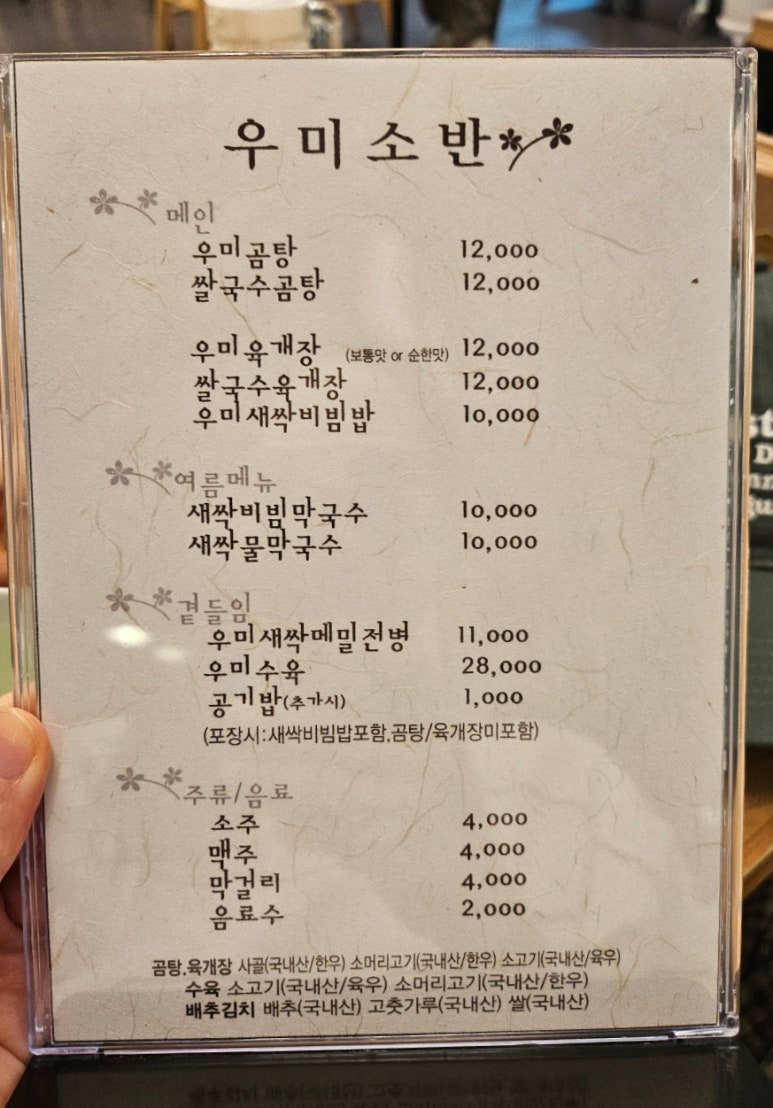 우미소반
메인
우미곰탕 12,000
쌀국수곰탕 12,000
우미육개장 (보통맛 or 순한맛) 12,000
쌀국수육개장 12,000
우미새싹비빔밥 10,000
여름메뉴
새싹비빔막국수 10,000
새싹물막국수 10,000
곁들임
우미새싹메밀전병 11,000
우미수육 28,000
공기밥(추가시) 1,000
(포장시:새싹비빔밥포함,곰탕/육개장미포함)
주류/음료
소주 4,000
맥주 4,000
막걸리 4,000
음료수 2,000
곰탕,육개장 사골(국내산/한우) 소머리고기(국내산/한우) 소고기(국내산/육우)
수육 소고기(국내산/육우) 소머리고기(국내산/한우)
배추김치 배추(국내산) 고춧가루(국내산) 쌀(국내산)